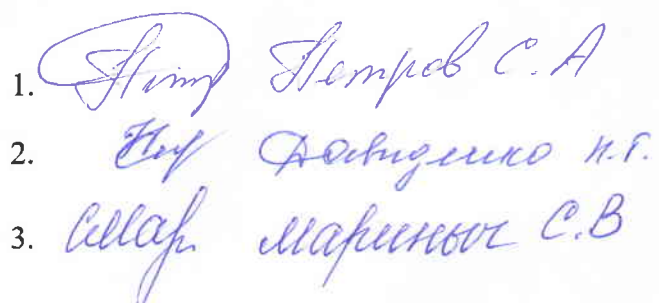 1. Петр Петров С.А
2. Давиденко Н.Г.
3. СМар Маринич С.В